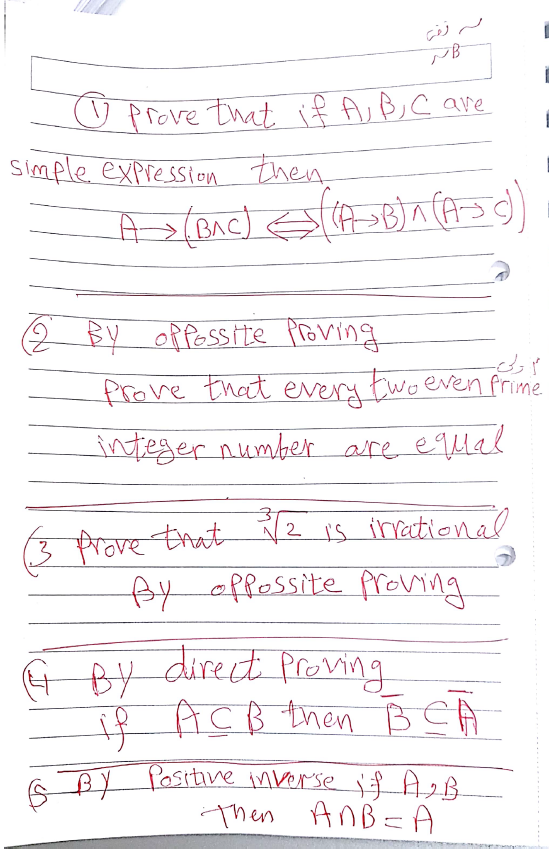 B
① Prove that if A, B, C are
simple expression then
A → (B∧C) ⟺ ((A→B) ∧ (A→C))
(2 By oppossite Proving
Prove that every two even Prime
integer number are equal
(3 Prove that ∛2 is irrational
By oppossite Proving
(4 By direct Proving
if A ⊆ B then B̅ ⊆ A̅
(5 By Positive inverse if A, B
Then A∩B = A